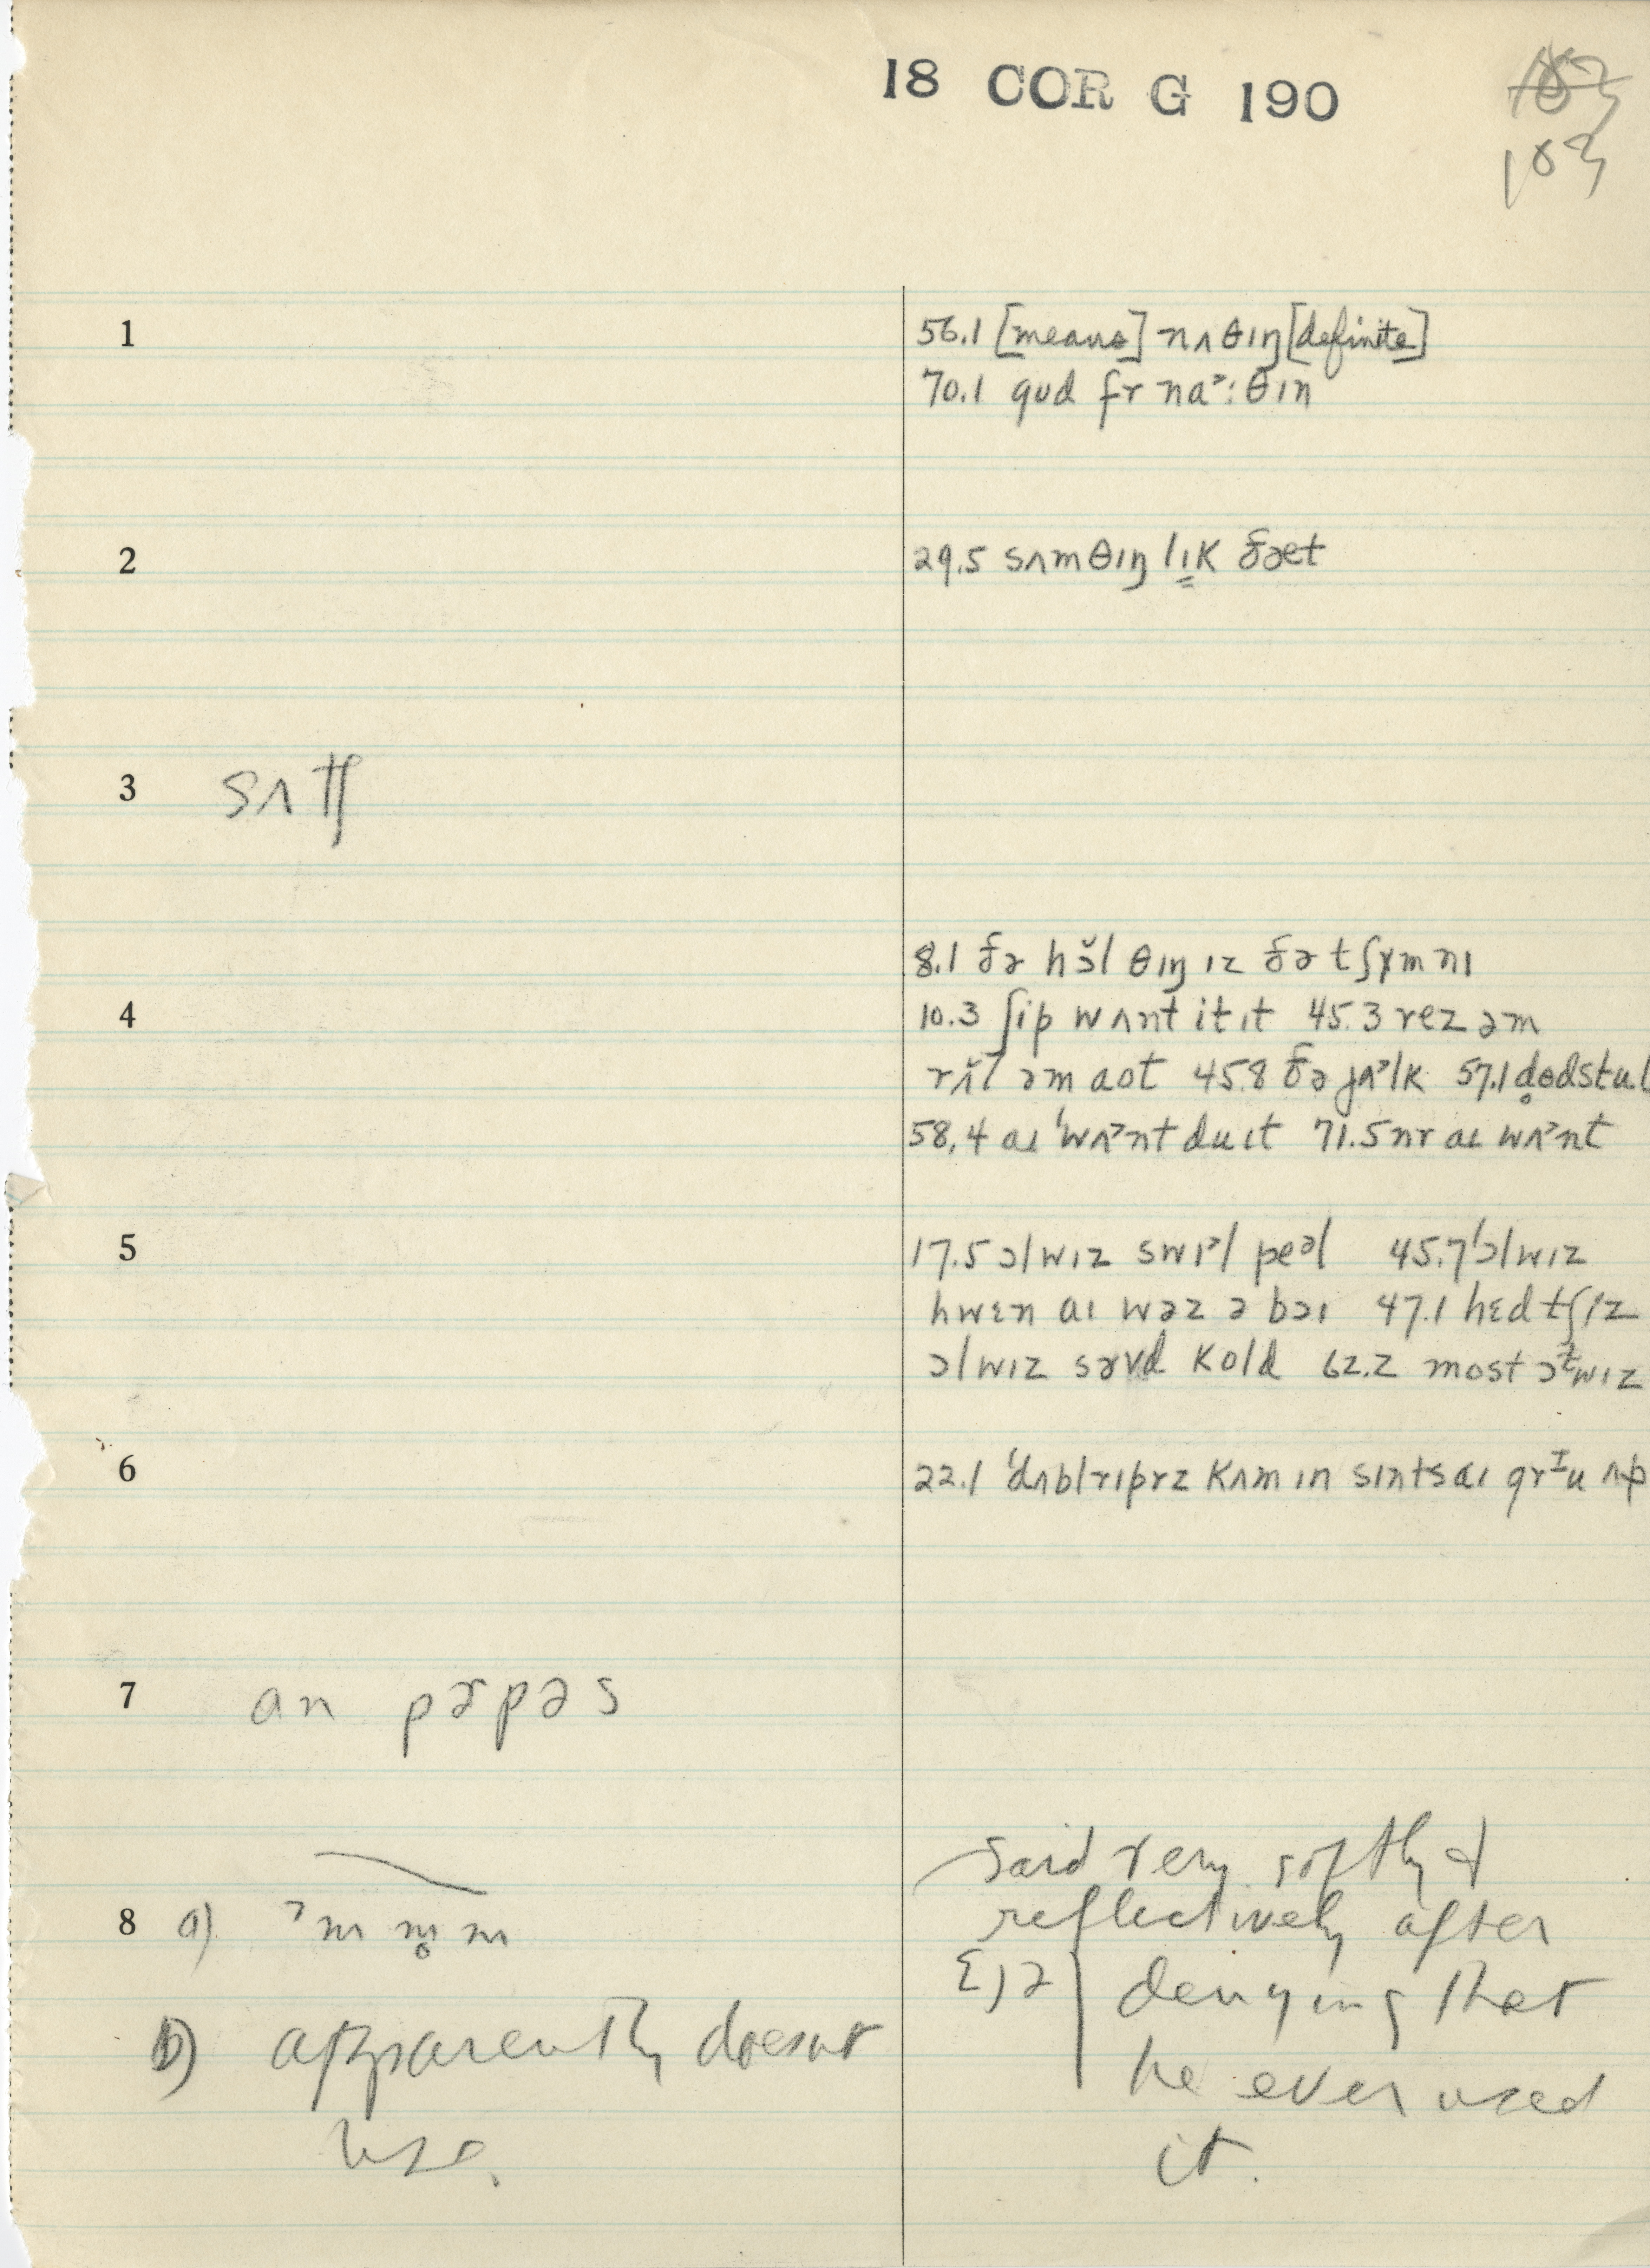 18 COR G 190
183
1 56.1 [means] nʌθɪŋ [definite]
70.1 gud fr na˃:θɪn
2 29.5 sʌmθɪŋ lɪK ðæt
3 sʌtʃ
8.1 ðə hɔ̆l θɪŋ ɪz ðə tʃɤmnɪ
4 10.3 ʃip wʌnt it ɪt 45.3 rez əm
rʌ̆l əm aot 45.8 ðə jʌ˃lk 57.1
58.4 aɪ ˈwʌ˃nt du ɪt 71.5 nr aɪ wʌ˃nt
5 17.5 ɔlwɪz swɪ˃l peəl 45.7 ˈɔlwɪz
hwɛn aɪ wəz ə bɔɪ 47.1 hɛdtʃɪz
ɔlwɪz sərvd Kold 62.2 most ɔɫwɪz
6 22.1 ˈdʌblrɪprz Kʌm ɪn sɪnts aɪ grɪu ʌp
7 an pɚpəs
8 a) ˀm m̥ m
said very softly &
reflectively after
denying that
b) apparently doesnt
he ever used
use.
it.